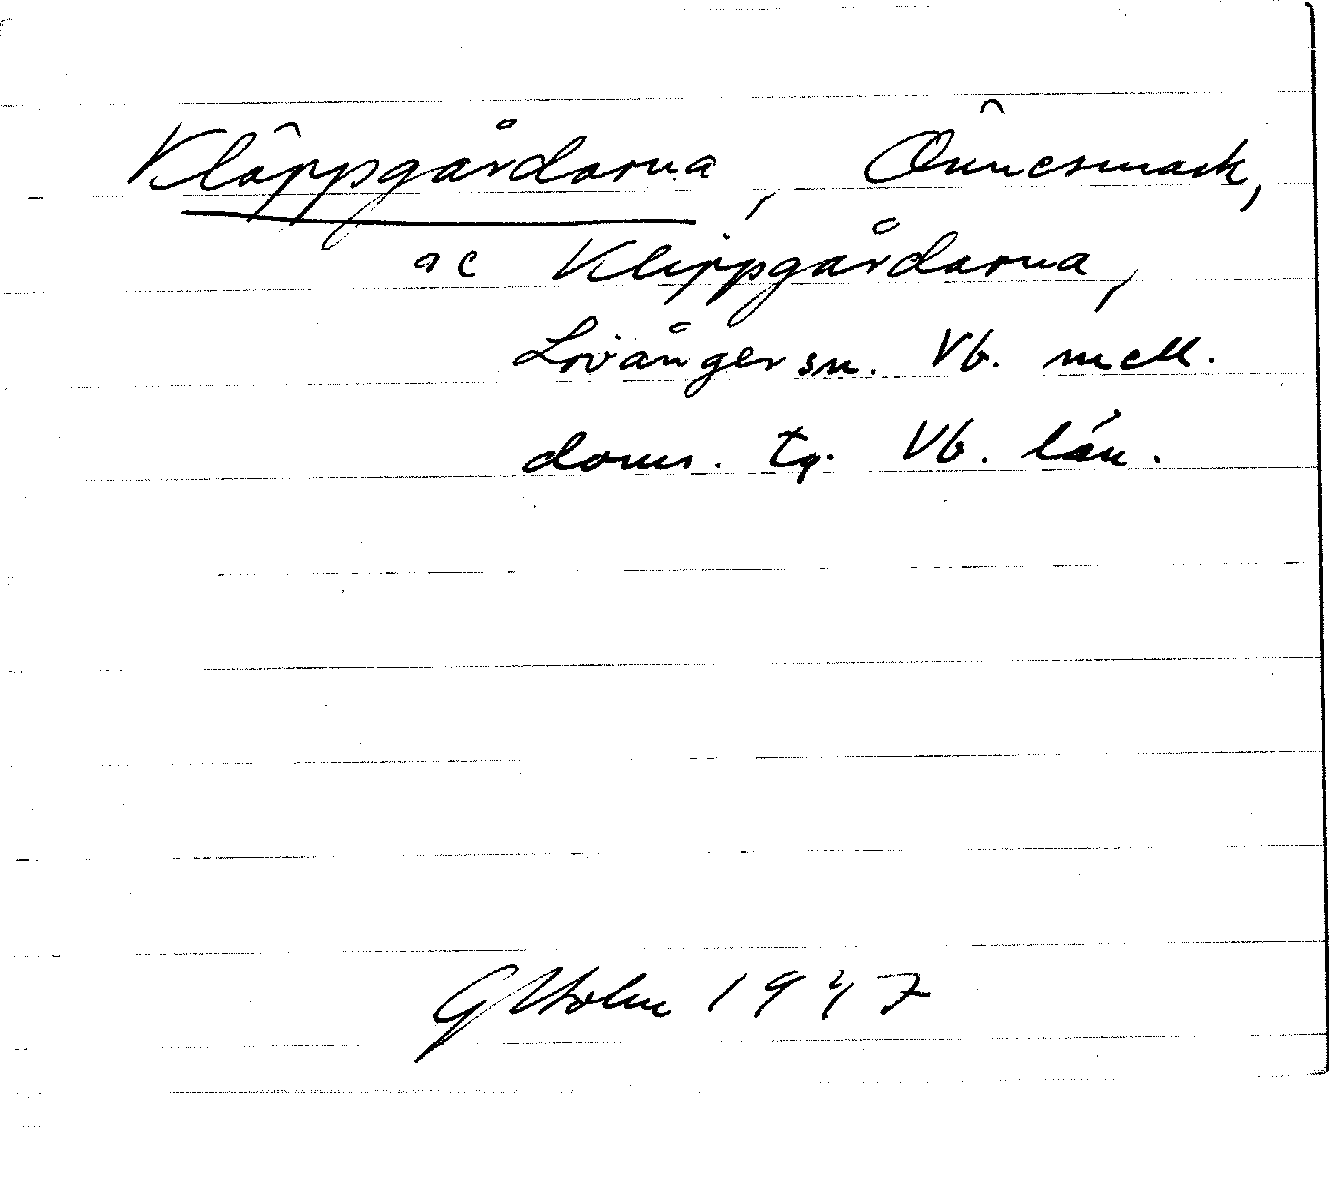 Klöppgårdarna, Önnesmark,
ac Klippgårdarna,
Lövånger sn. Vb. mell.
doms. tg. Vb. län.
G Holm 1947